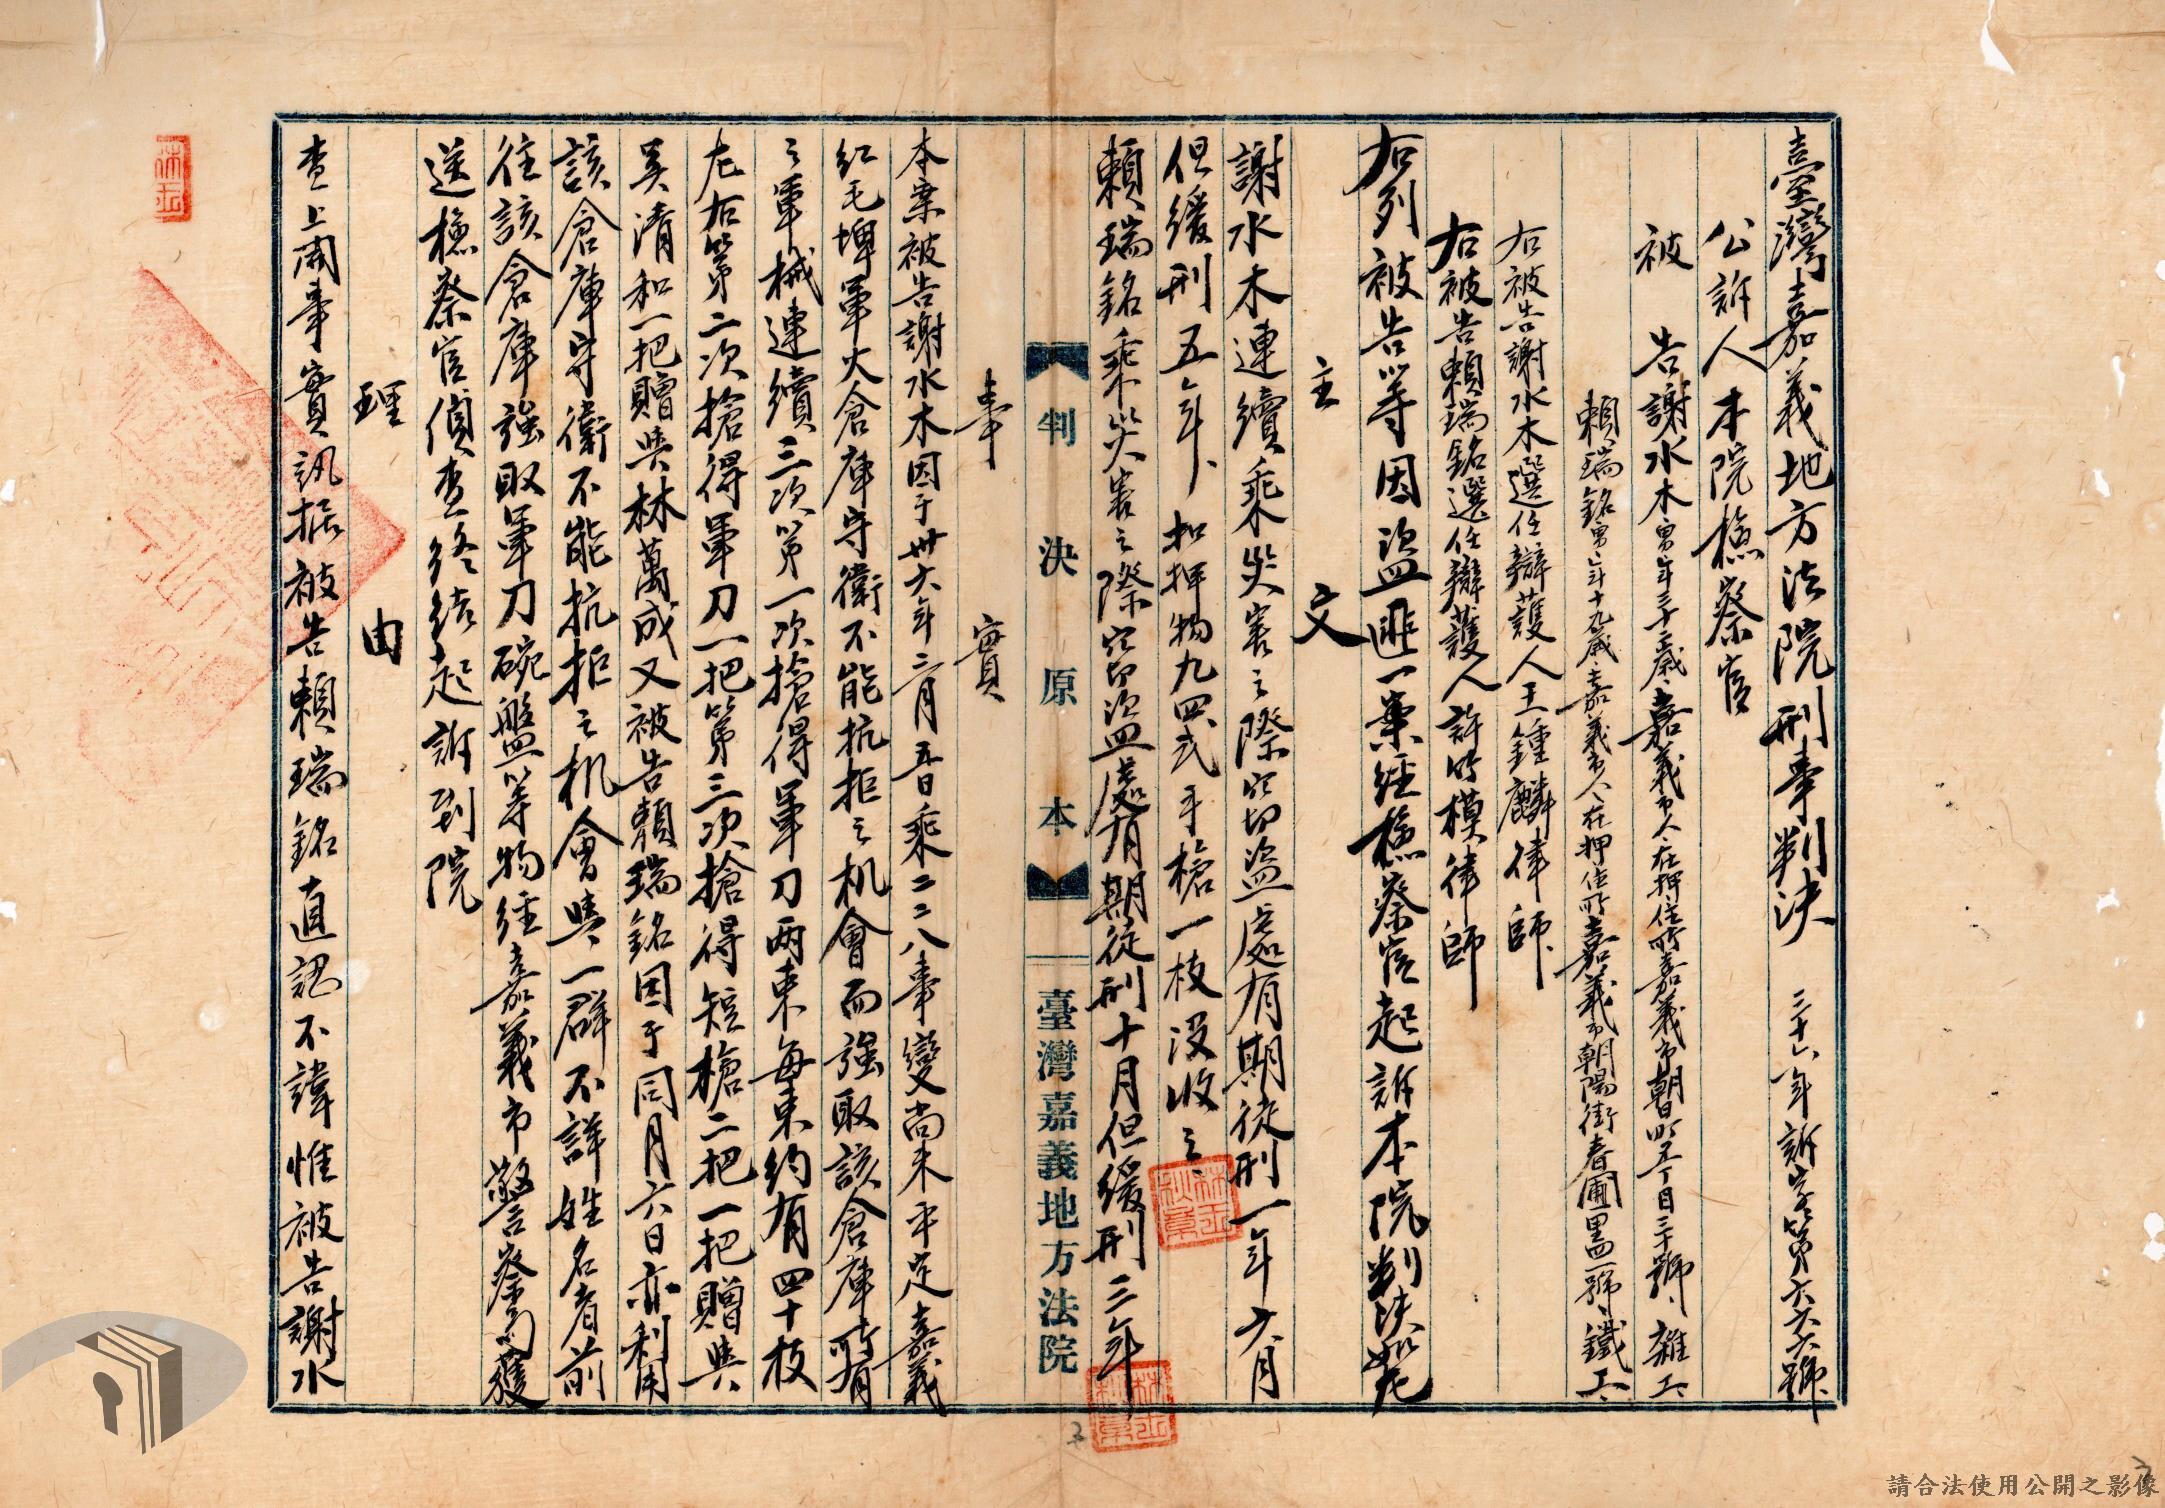 臺灣嘉義地方法院刑事判決 三十六年訴字第六六六號
公訴人本院檢察官
被告謝水木男年三十二歲嘉義市人在押住所嘉義市朝日町五丁目三十號雜工
賴瑞銘男年十九歲嘉義市人在押住所嘉義市朝陽街春圃里四一號鐵工
右被告謝水木選任辯護人王鍾麟律師
右被告賴瑞銘選任辯護人許竹模律師
右列被告等因盜匪一案經檢察官起訴本院判決如左
主文
謝水木連續乘災害之際竊盜處有期徒刑一年六月
但緩刑五年扣押物九四式手槍一枝沒收之
賴瑞銘乘災害之際竊盜處有期徒刑十月但緩刑三年
判決原本 臺灣嘉義地方法院
事實
本案被告謝水木因于卅六年三月五日乘二二八事變尚未平定嘉義
紅毛埤軍火倉庫守衛不能抗拒之机會而強取該倉庫所有
之軍械連續三次第一次搶得軍刀兩束每束約有四十枝
左右第二次搶得軍刀一把第三次搶得短槍二把一把贈與
吳清和一把贈與林萬成又被告賴瑞銘因于同月六日亦利用
該倉庫守衛不能抗拒之机會與一群不詳姓名者前
往該倉庫強取軍刀碗盤等物經嘉義市警察局獲
送檢察官偵查終結起訴到院
理由
查上開事實訊據被告賴瑞銘直認不諱惟被告謝水
林玉秋章
林玉秋章
林玉
3
請合法使用公開之影像